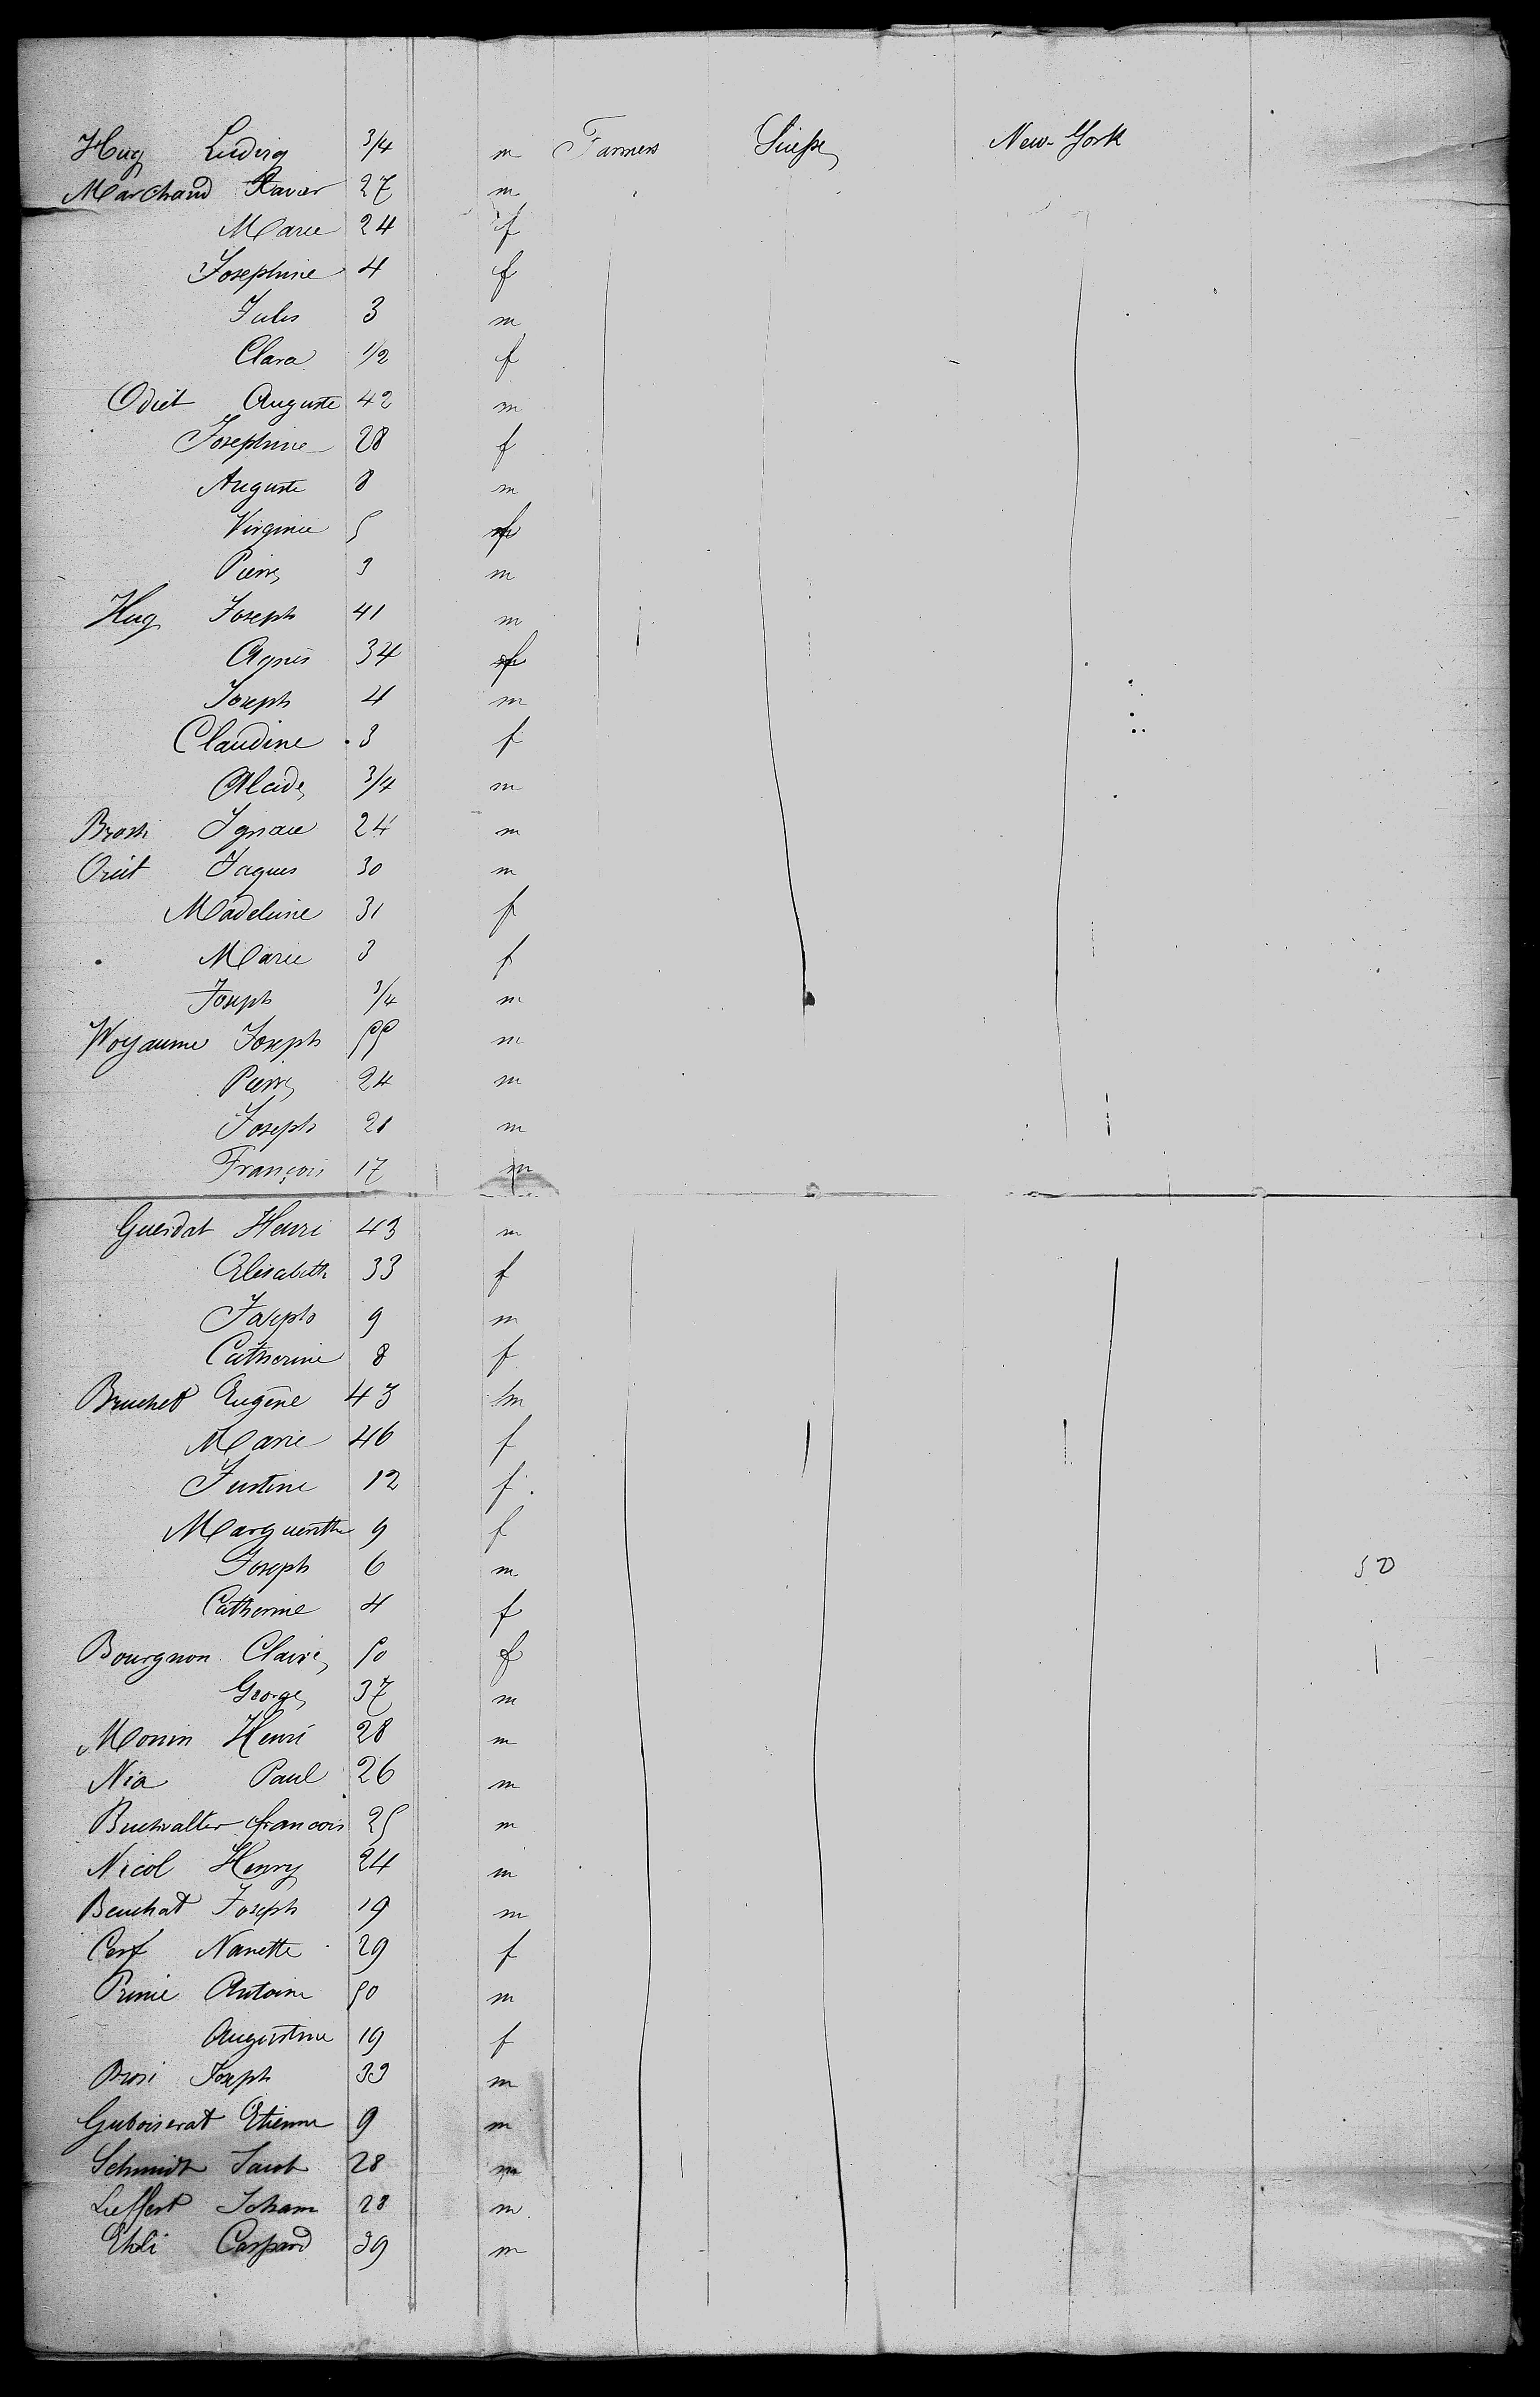 Hug Ludwig 3/4 m Farmers Suisse New-York
Marchand Xavier 27 m
Marie 24 f
Josephine 4 f
Jules 3 m
Clara 1/2 f
Odiet Auguste 42 m
Josephine 28 f
Auguste 8 m
Virginie 5 f
Pierre 3 m
Hug Joseph 41 m
Agnes 34 f
Joseph 4 m
Claudine 3 f
Alcide 3/4 m
Brosi Ignace 24 m
Jaques 30 m
Madeleine 31 f
Marie 3 f
Joseph 3/4 m
Woyaume Joseph 55 m
Pierre 24 m
Joseph 21 m
François 17 m
Guerdat Henri 43 m
Elisabeth 33 f
Joseph 9 m
Catherine 8 f
Bruchet Eugène 43 m
Marie 46 f
Justine 12 f
Marguerithe 9 f
Joseph 6 m 50
Catherine 4 f
Bourgnon Claire 50 f
George 37 m
Monin Henri 28 m
Nia Paul 26 m
Buchwalter francois 25 m
Nicol Henry 24 m
Beuchat Joseph 19 m
Cerf Nanette 29 f
Antoine 50 m
Augustine 19 f
Brosi Joseph 33 m
Etienne 9 m
Schmidt Jacob 28 m
Lieffert Joham 28 m
Ehli Caspard 39 m